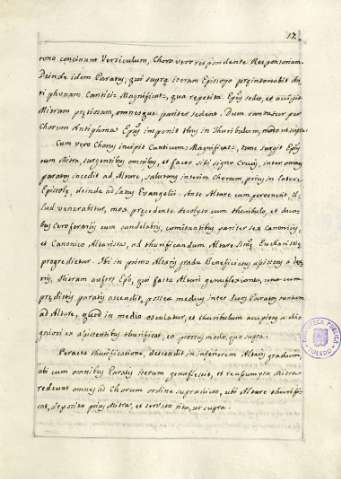 12
cono concinunt Versiculum, Choro vero respondente Responsorium.
Deinde idem Paraty, qui supra iterum Episcopo preintonabit An-
tiphonam Cantici Magnificat, qua repetita Epus sedet, et accipit
Mitram pretiosam, omnesque pariter sedent. Dum cantatur per
Chorum Antiphona Epus imponit thus in Thuribulum, more ut supra.
Cum vero Chorus incipit Canticum Magnificat, tunc surgit Epus
cum Mitra, surgentibus omnibus, et facto sibi signo Crucis, inter omnes
paratos incedit ad Altare, salutans interim Chorum, prius in latere
Epistole, deinde ad latus Evangelii. Ante Altare cum pervenerit, il-
lud venerabitur, mox precedente Acolyto cum thuribulo, et duo-
bus Ceroferariis cum candelabris, comitantibus pariter sex Canonicis,
et Canonico Altarista, ad thurificandum Altare Eucharistie
progredietur. Ibi in primo Altaris gradu Beneficiatus assistens
Mitram aufert Epo, qui facta Altari genuflexione, una cum
predictis paratis ascendit, postea medius inter duos Paratos
ad Altare, quod in medio osculatur, et thuribulum accipiens a
assistentibus thurificat, eo prorsus modo, quo supra.
Peracta thurificatione, descendit in inferiorem Altaris gradum,
ubi cum omnibus Paratis iterum genuflectit, et resumpta Mitra
redeunt omnes ad Chorum ordine supradicto, ubi Altare thurifi-
cat, deposita prius Mitra, et ut supra.
BIBLIOTECA PUBLICA
TOLEDO